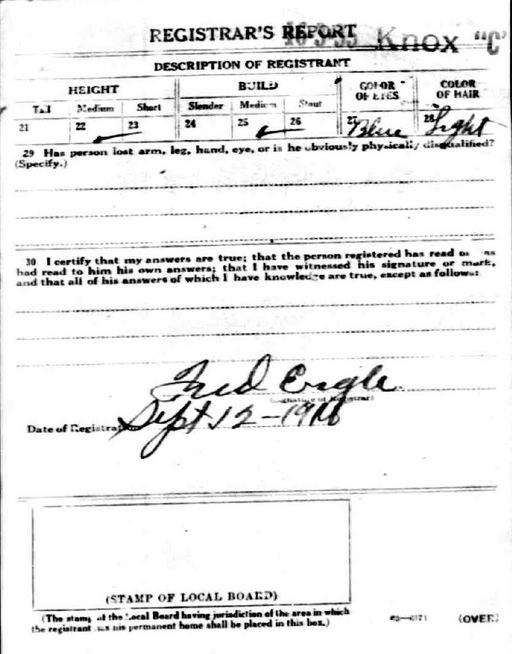 REGISTRAR'S REPORT
16-3-33 Knox "C"
DESCRIPTION OF REGISTRANT
HEIGHT BUILD COLOR OF EYES COLOR OF HAIR
Tall Medium Short Slender Medium Stout
21 22 23 24 25 26 27 Blue 28 Light
29 Has person lost arm, leg, hand, eye, or is he obviously physically disqualified?
(Specify.)
30 I certify that my answers are true; that the person registered has read or has
had read to him his own answers; that I have witnessed his signature or mark,
and that all of his answers of which I have knowledge are true, except as follows:
Fred Engle
(Signature of Registrar)
Date of Registration Sept 12-1918
(STAMP OF LOCAL BOARD)
(The stamp of the Local Board having jurisdiction of the area in which
the registrant has his permanent home shall be placed in this box.)
(OVER)